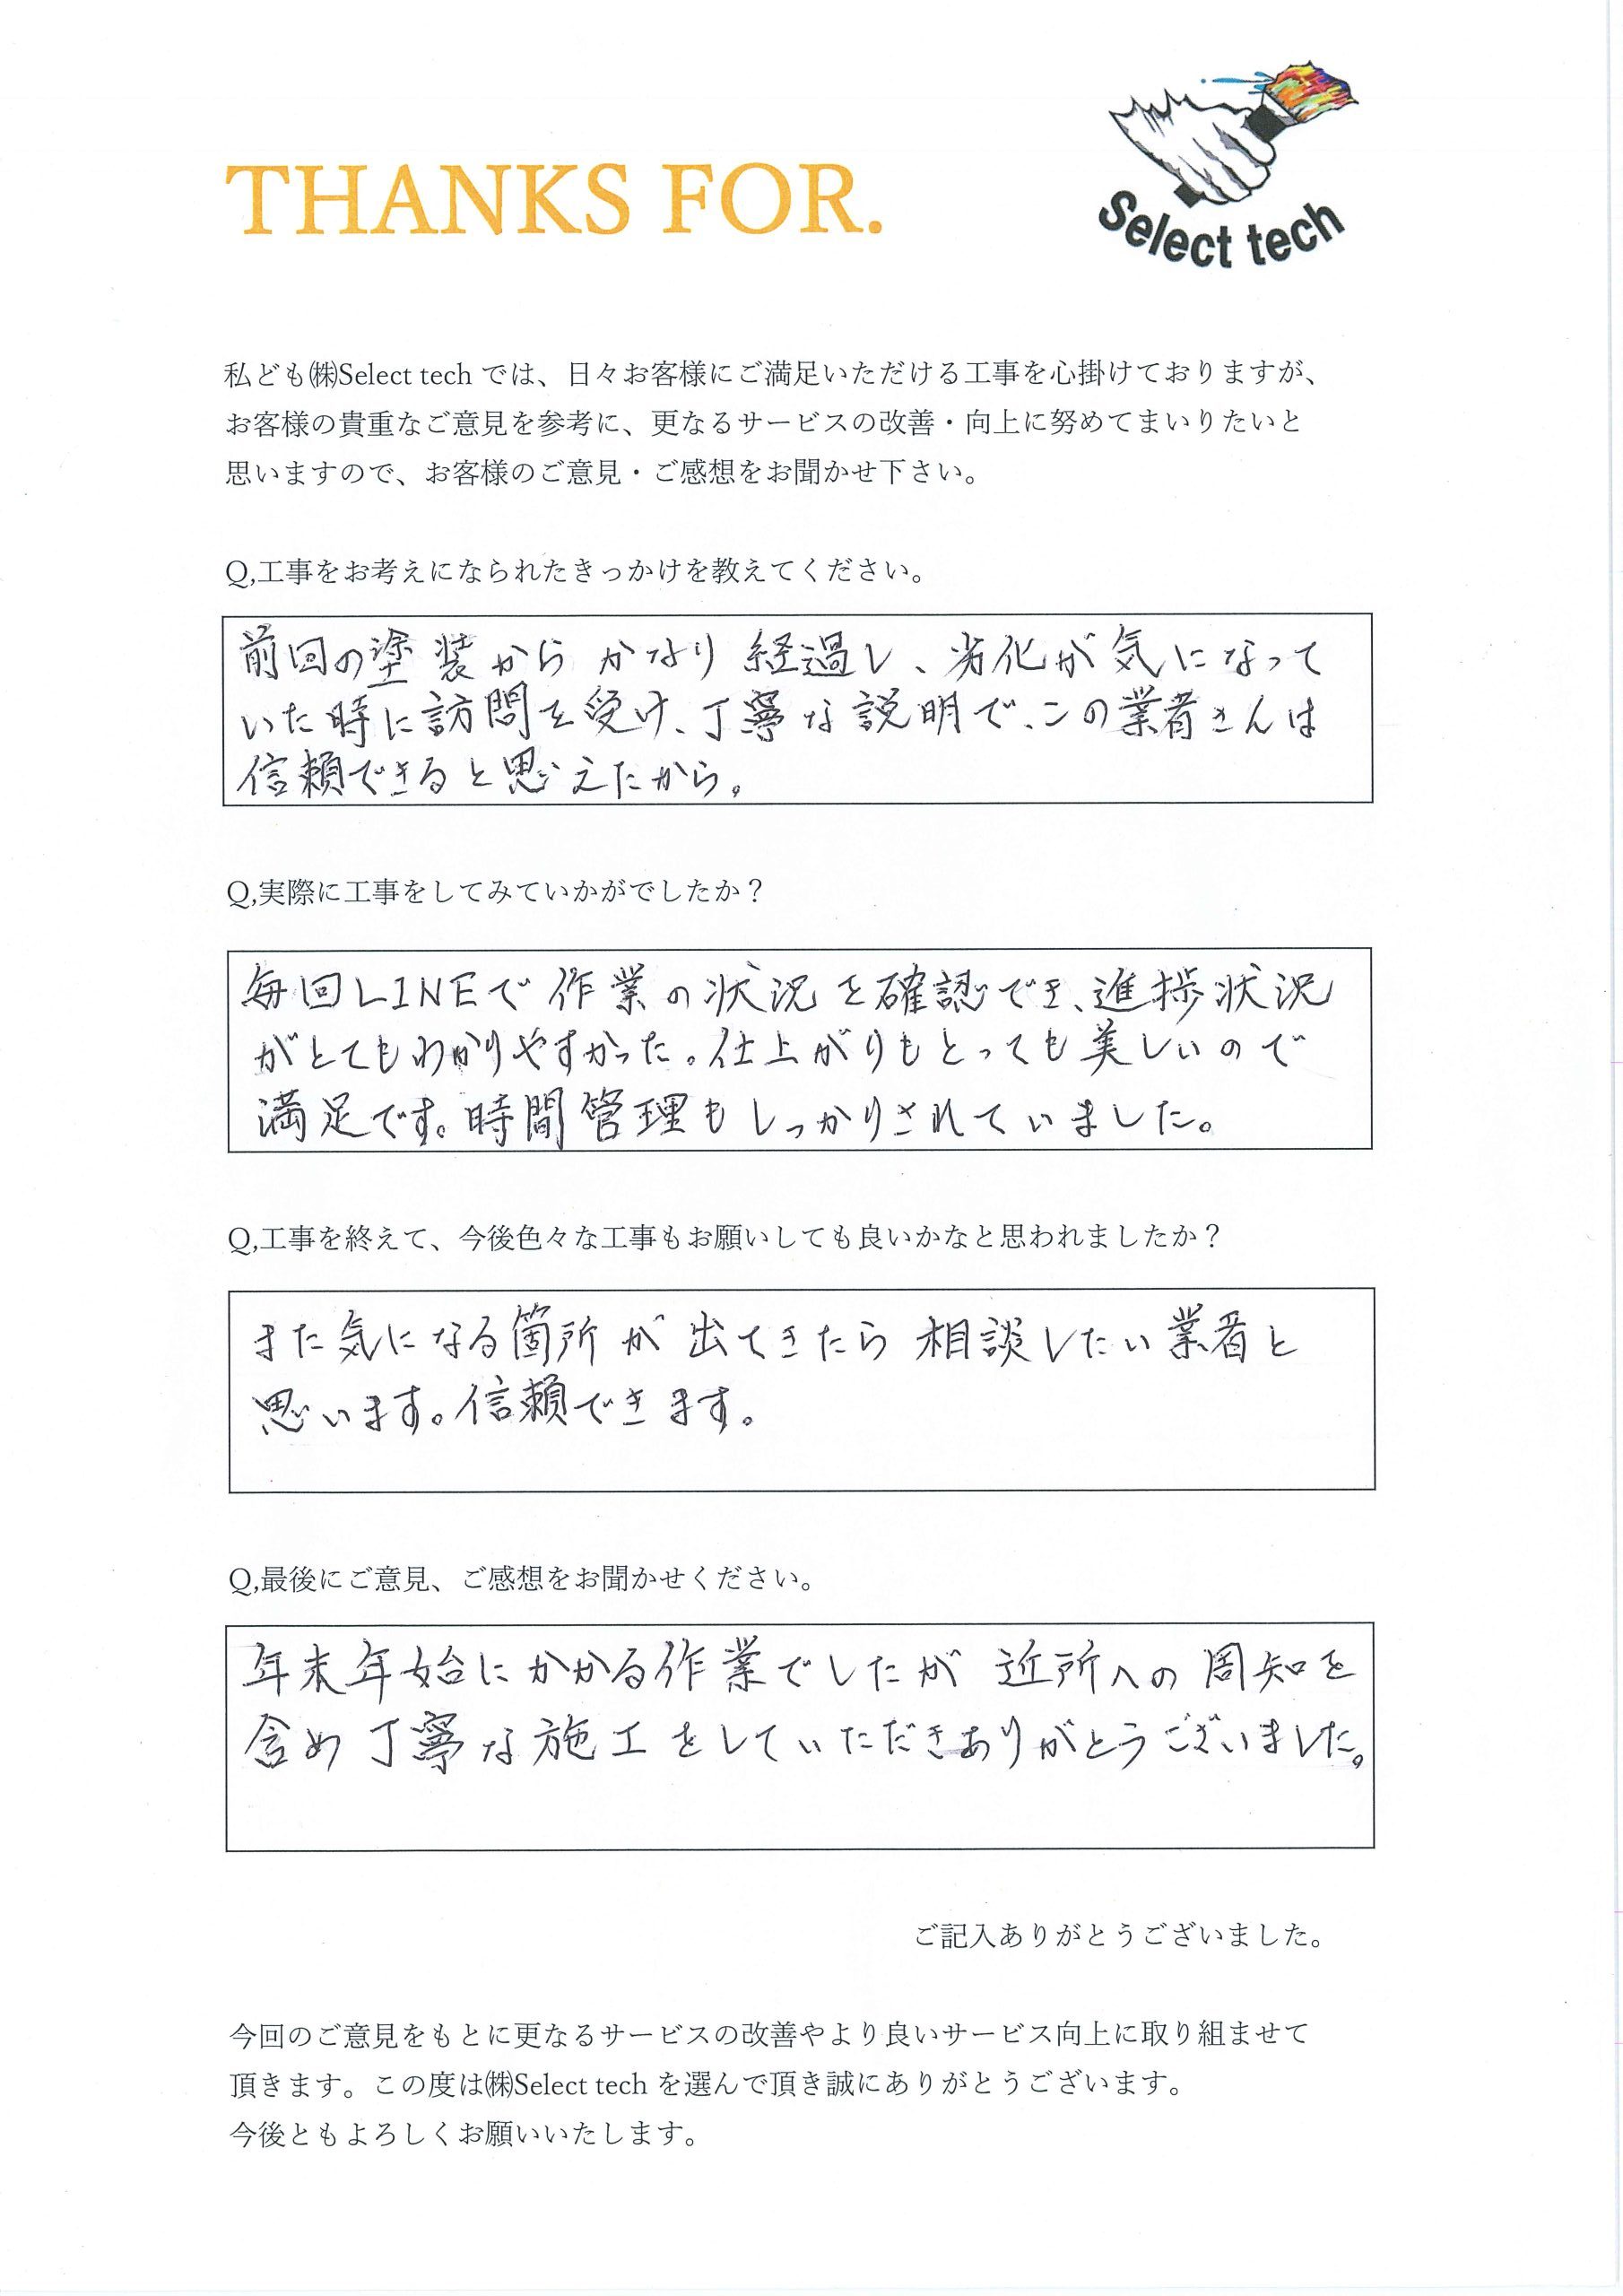 THANKS FOR.
Select tech
私ども㈱Select tech では、日々お客様にご満足いただける工事を心掛けておりますが、
お客様の貴重なご意見を参考に、更なるサービスの改善・向上に努めてまいりたいと
思いますので、お客様のご意見・ご感想をお聞かせ下さい。
Q,工事をお考えになられたきっかけを教えてください。
前回の塗装からかなり経過し、劣化が気になって
いた時に訪問を受け、丁寧な説明で、この業者さんは
信頼できると思えたから。
Q,実際に工事をしてみていかがでしたか？
毎回LINEで作業の状況を確認でき、進捗状況
がとてもわかりやすかった。仕上がりもとっても美しいので
満足です。時間管理もしっかりされていました。
Q,工事を終えて、今後色々な工事もお願いしても良いかなと思われましたか？
また気になる箇所が出てきたら相談したい業者と
思います。信頼できます。
Q,最後にご意見、ご感想をお聞かせください。
年末年始にかかる作業でしたが近所への周知を
含め丁寧な施工をしていただきありがとうございました。
ご記入ありがとうございました。
今回のご意見をもとに更なるサービスの改善やより良いサービス向上に取り組ませて
頂きます。この度は㈱Select tech を選んで頂き誠にありがとうございます。
今後ともよろしくお願いいたします。